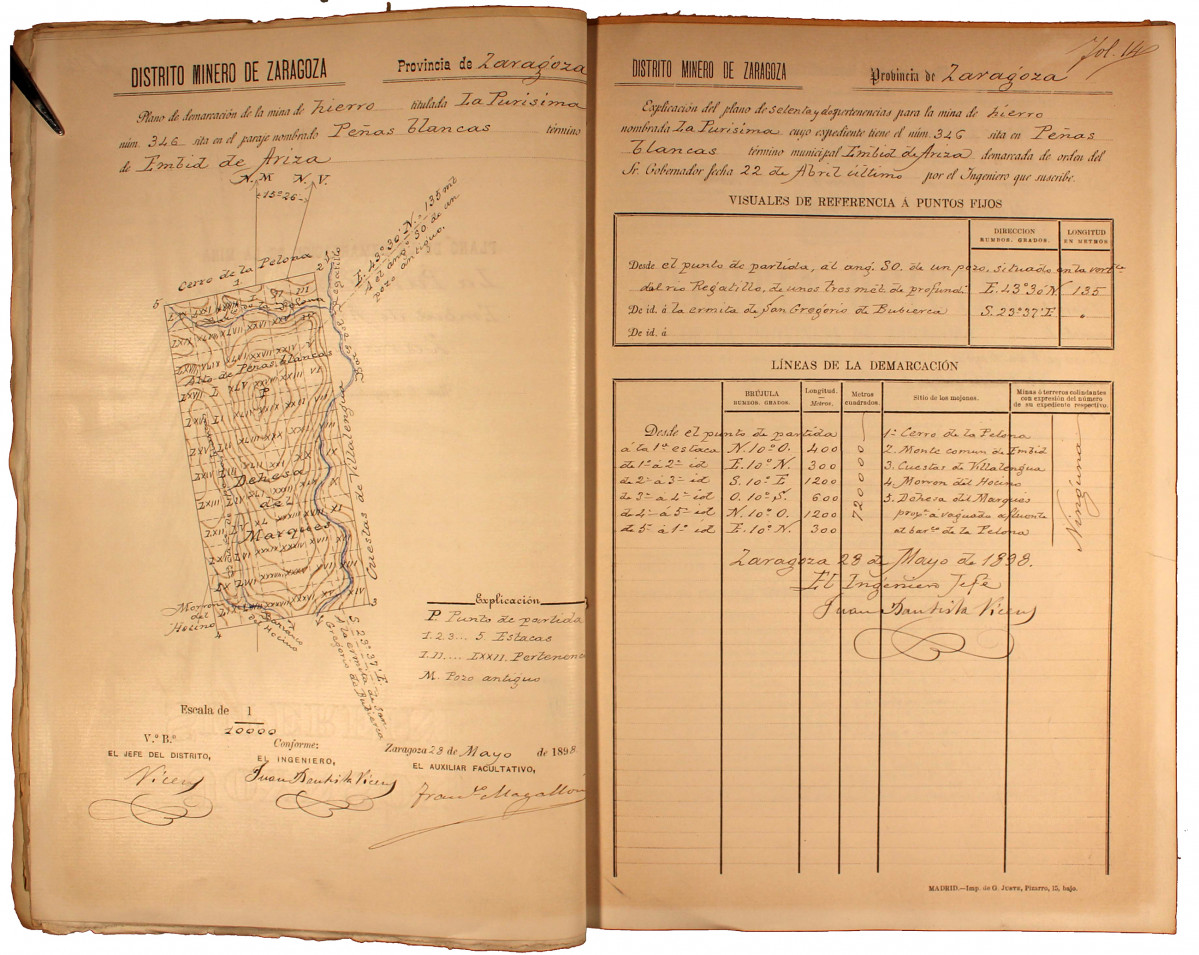 DISTRITO MINERO DE ZARAGOZA
Provincia de Zaragoza
Plano de demarcación de la mina de hierro titulada La Purisima
núm. 346 sita en el paraje nombrado Peñas blancas término
de Embid de Ariza
N.M N.V.
15º26'
E. 43º30' N. 135 mts
Al ang. SO. de un
pozo antiguo.
Cerro de la Pelona
1
2
5
Alto de Peñas blancas
P
Dehesa
del
Marques
Cuestas de Villalengua
3
4
Morron
del
Hocino
Barranco
del Hocino
S. 23º37' E.
A la ermita de San
Gregorio de Bubierca
Explicación
P. Punto de partida
1.2.3... 5. Estacas
I.II.... LXXII. Pertenenc
M. Pozo antiguo
Escala de 1
10000
V.º B.º
EL JEFE DEL DISTRITO,
Vicens
Conforme:
EL INGENIERO,
Juan Bautista Vicens
Zaragoza 28 de Mayo de 1898
EL AUXILIAR FACULTATIVO,
Fran.co Magallón
Fol. 14
DISTRITO MINERO DE ZARAGOZA
Provincia de Zaragoza
Explicación del plano de setenta y dos pertenencias para la mina de hierro
nombrada La Purisima cuyo expediente tiene el núm. 346 sita en Peñas
blancas término municipal Embid de Ariza demarcada de orden del
Sr. Gobernador fecha 22 de Abril último por el Ingeniero que suscribe.
VISUALES DE REFERENCIA Á PUNTOS FIJOS
DIRECCION
RUMBOS. GRADOS.
LONGITUD
EN METROS
Desde el punto de partida, al ang. SO. de un pozo, situado en la vert.te
del rio Regatillo, de unos tres met. de profund. E. 43º30' N 135
De id. á la ermita de San Gregorio de Bubierca S. 23º37' E "
De id. á
LÍNEAS DE LA DEMARCACIÓN
BRÚJULA
RUMBOS. GRADOS.
Longitud.
Metros.
Metros
cuadrados.
Sitio de los mojones.
Minas ó terreros colindantes
con expresión del número
de su expediente respectivo.
Desde el punto de partida
á la 1ª estaca N. 10º O. 400
de 1ª á 2ª id E. 10º N. 300
de 2ª á 3ª id S. 10º E 1200
de 3ª á 4ª id O. 10º S. 600
de 4ª á 5ª id N. 10º O. 1200
de 5ª á 1ª id E. 10º N. 300
720000
1ª Cerro de la Pelona
2. Monte comun de Embid
3. Cuestas de Villalengua
4. Morron del Hocino
5. Dehesa del Marqués
prox.ª á vaguada afluente
al barr.co de la Pelona
Ninguna
Zaragoza 28 de Mayo de 1898.
El Ingeniero Jefe
Juan Bautista Vicens
MADRID.—Imp. de G. JUSTE, Pizarro, 15, bajo.